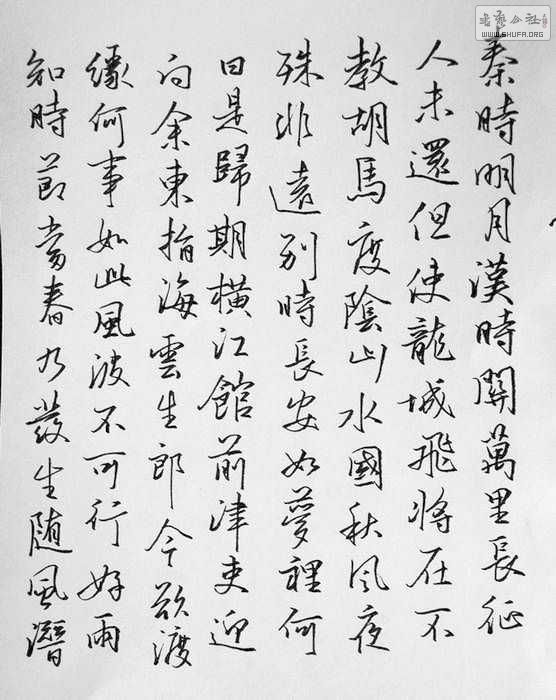 秦時明月漢時關萬里長征
人未還但使龍城飛將在不
教胡馬度陰山水國秋風夜
殊非遠別時長安如夢裡何
日是歸期橫江館前津吏迎
向余東指海雲生郎今欲渡
緣何事如此風波不可行好雨
知時節當春乃發生随風潛
書藝公社
WWW.SHUFA.ORG